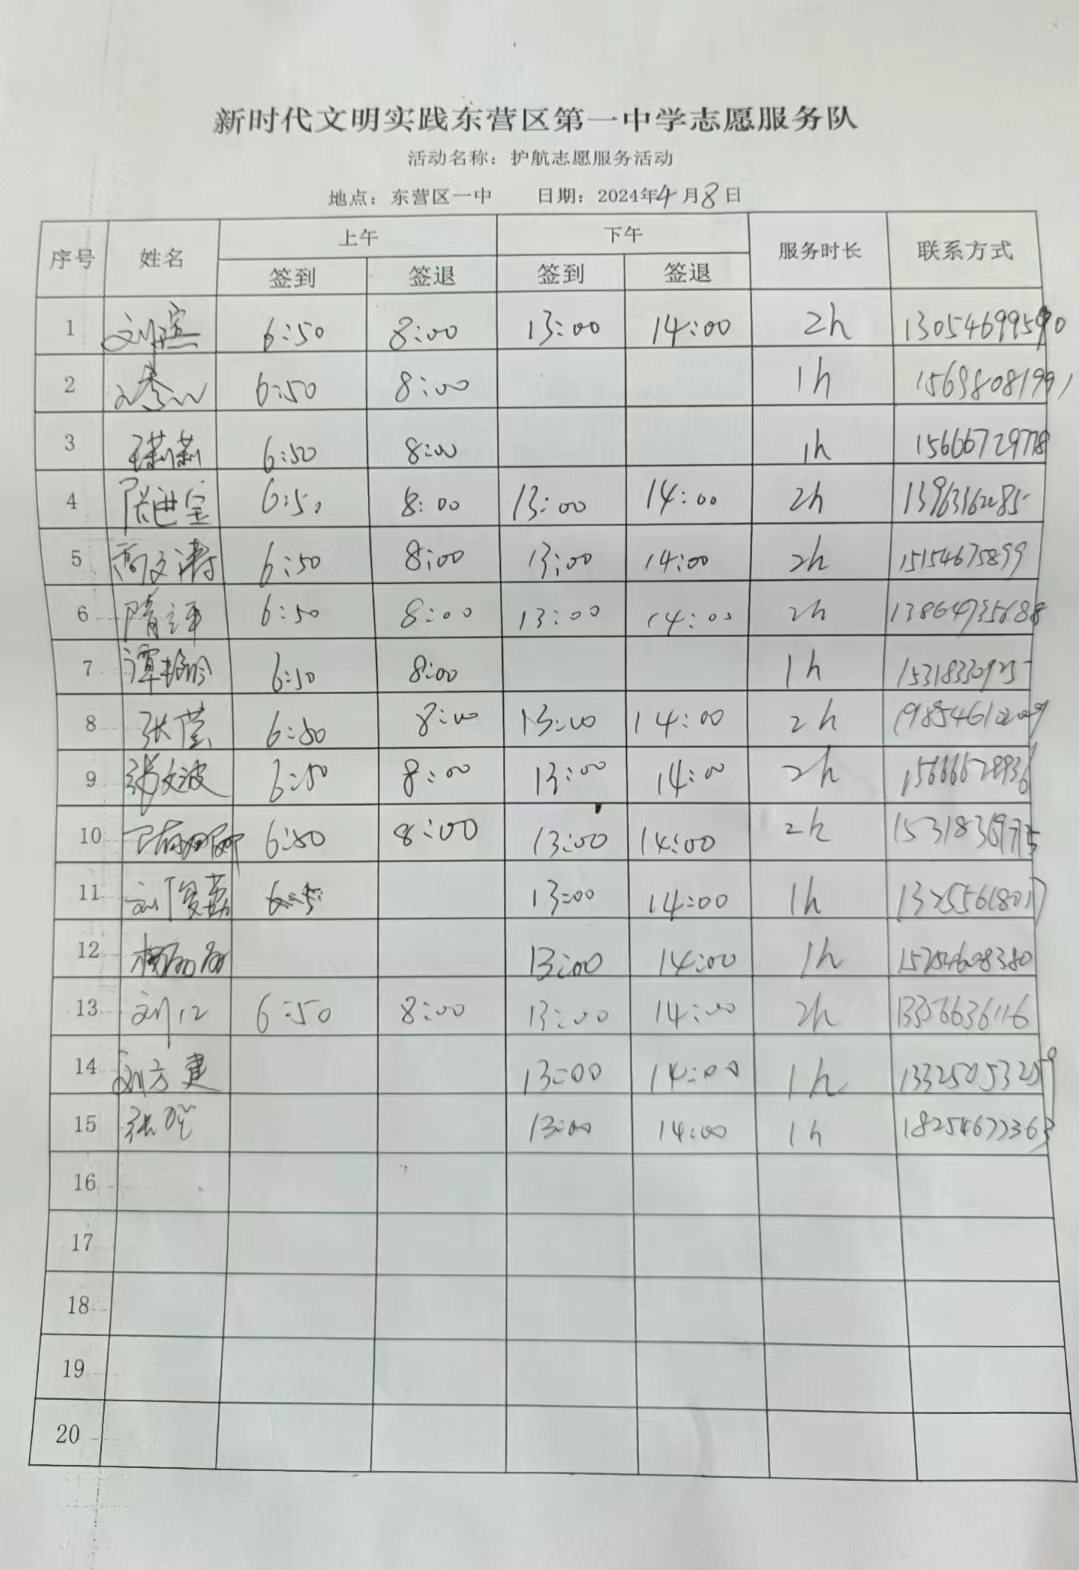 新时代文明实践东营区第一中学志愿服务队
活动名称：护航志愿服务活动
地点：东营区一中 日期：2024年4月8日
序号 姓名 上午 下午 服务时长 联系方式
签到 签退 签到 签退
1 6:50 8:00 13:00 14:00 2h
2 6:50 8:00 1h 15698081991
3 王莉莉 6:50 8:00 1h 15666729778
4 张进宝 6:50 8:00 13:00 14:00 2h
5 高文涛 6:50 8:00 13:00 14:00 2h 15154675899
6 隋译 6:50 8:00 13:00 14:00 2h 13864735688
7 6:50 8:00 1h
8 张莹 6:50 8:00 13:00 14:00 2h
9 张文波 6:50 8:00 13:00 14:00 2h 15666628936
10 6:50 8:00 13:00 14:00 2h
11 刘俊荔 13:00 14:00 1h
12 13:00 14:00 1h
13 刘江 6:50 8:00 13:00 14:00 2h
14 刘方建 13:00 14:00 1h 13325053259
15 13:00 14:00 1h 18254677363
16
17
18
19
20